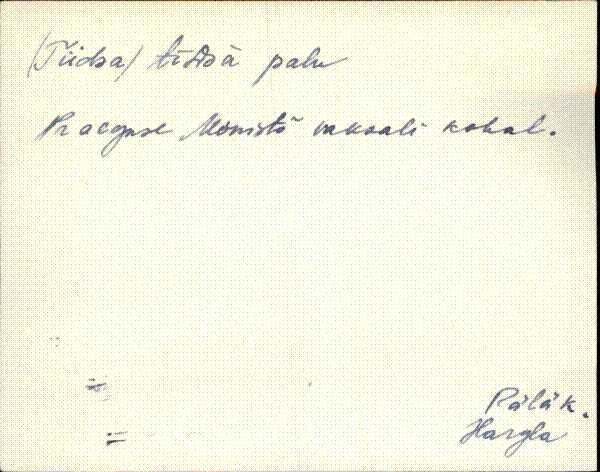 (Tiidsa) tīdsä palu
Praeguse Mõnistõ vaksali kohal.
Päläk.
Hargla